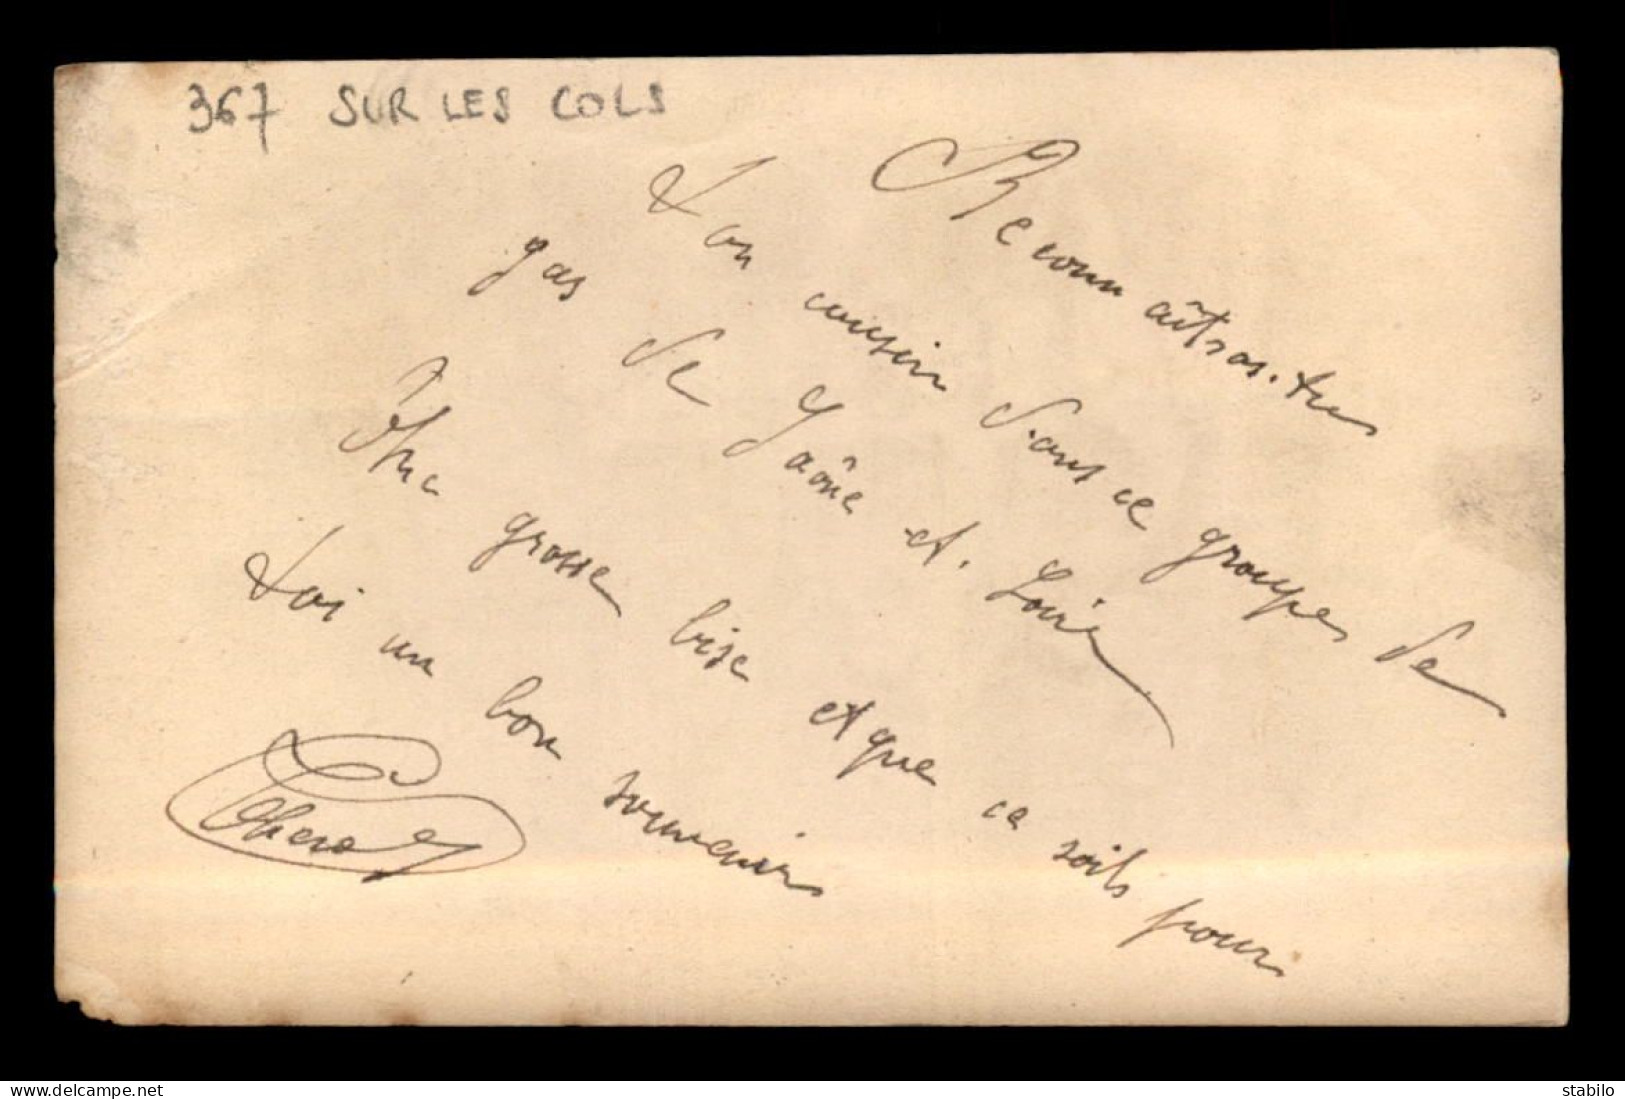 367 SUR LES COLS
Reconnaîtras-tu
ton cousin dans ce groupe de
gas de Saône et. Loire
Une grosse bise et que ce soit pour
toi un bon souvenir
www.delcampe.net
stabilo